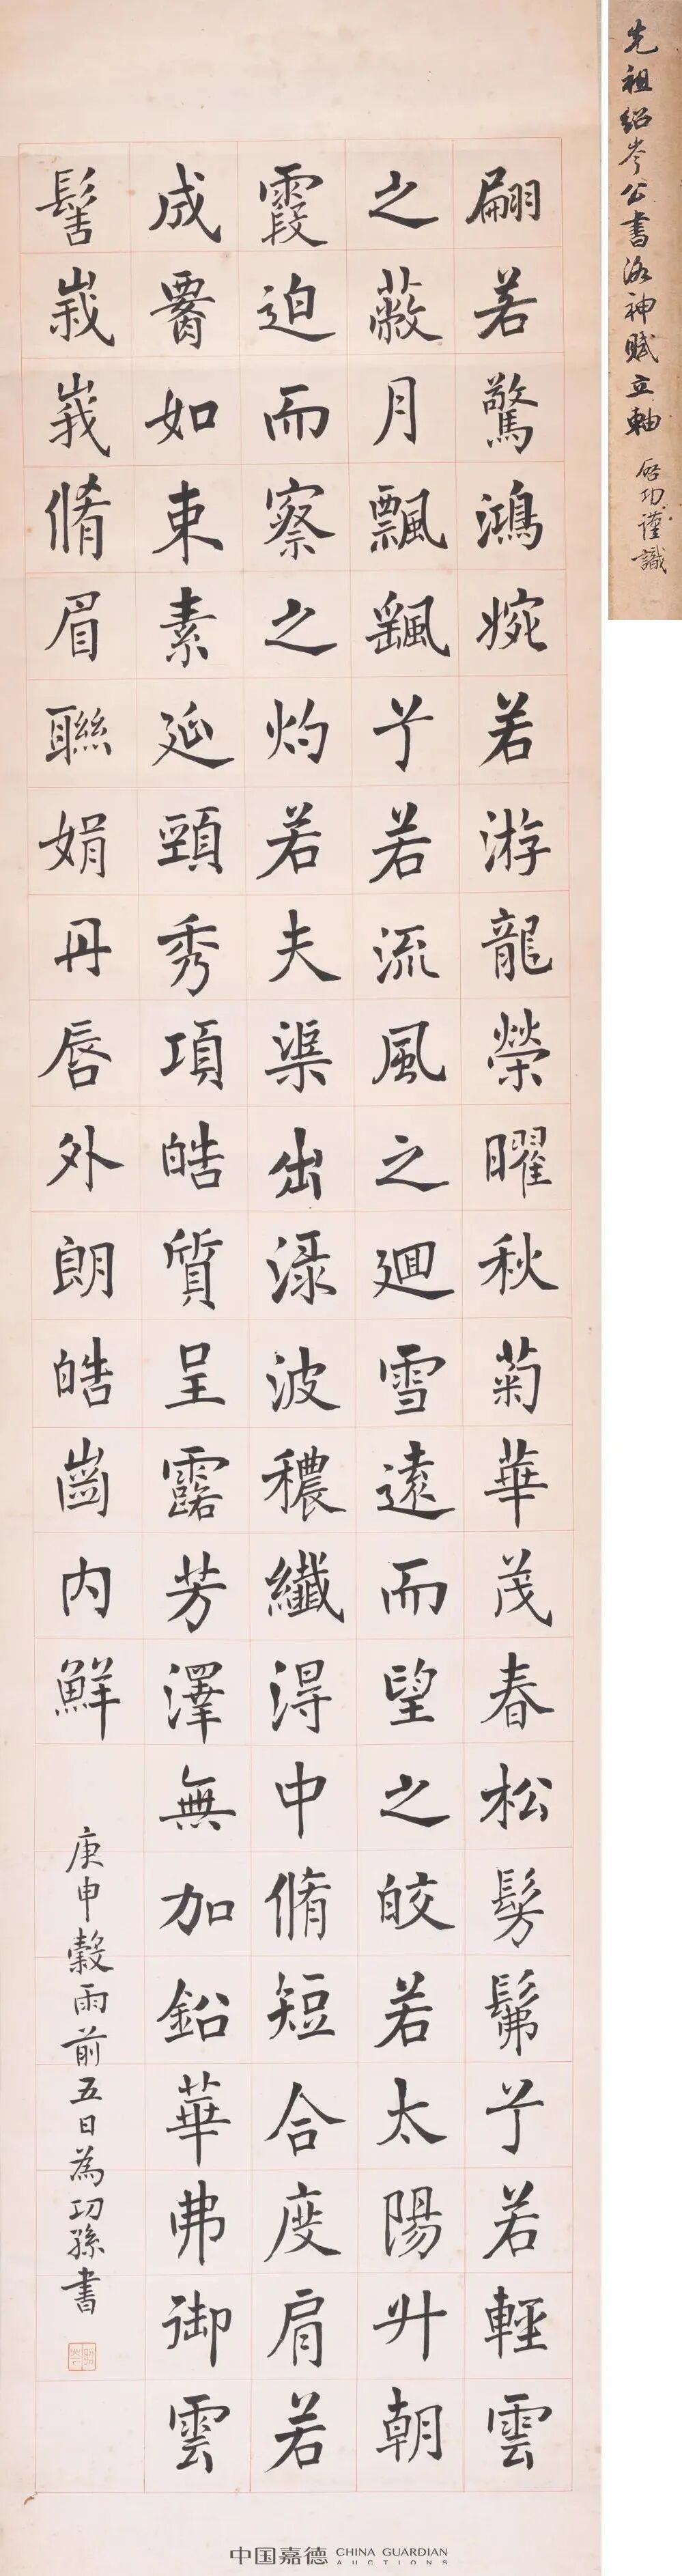 翩若驚鴻婉若游龍榮曜秋菊華茂春松髣髴兮若輕雲
之蔽月飄颻兮若流風之迴雪遠而望之皎若太陽升朝
霞迫而察之灼若夫渠出淥波穠纖得中脩短合度肩若
成䙬如束素延頸秀項皓質呈露芳澤無加鉛華弗御雲
髻峩峩脩眉聯娟丹唇外朗皓齒內鮮
庚申穀雨前五日為功孫書
先祖紹岑公書洛神賦立軸 啓功謹識
中国嘉德 CHINA GUARDIAN AUCTIONS